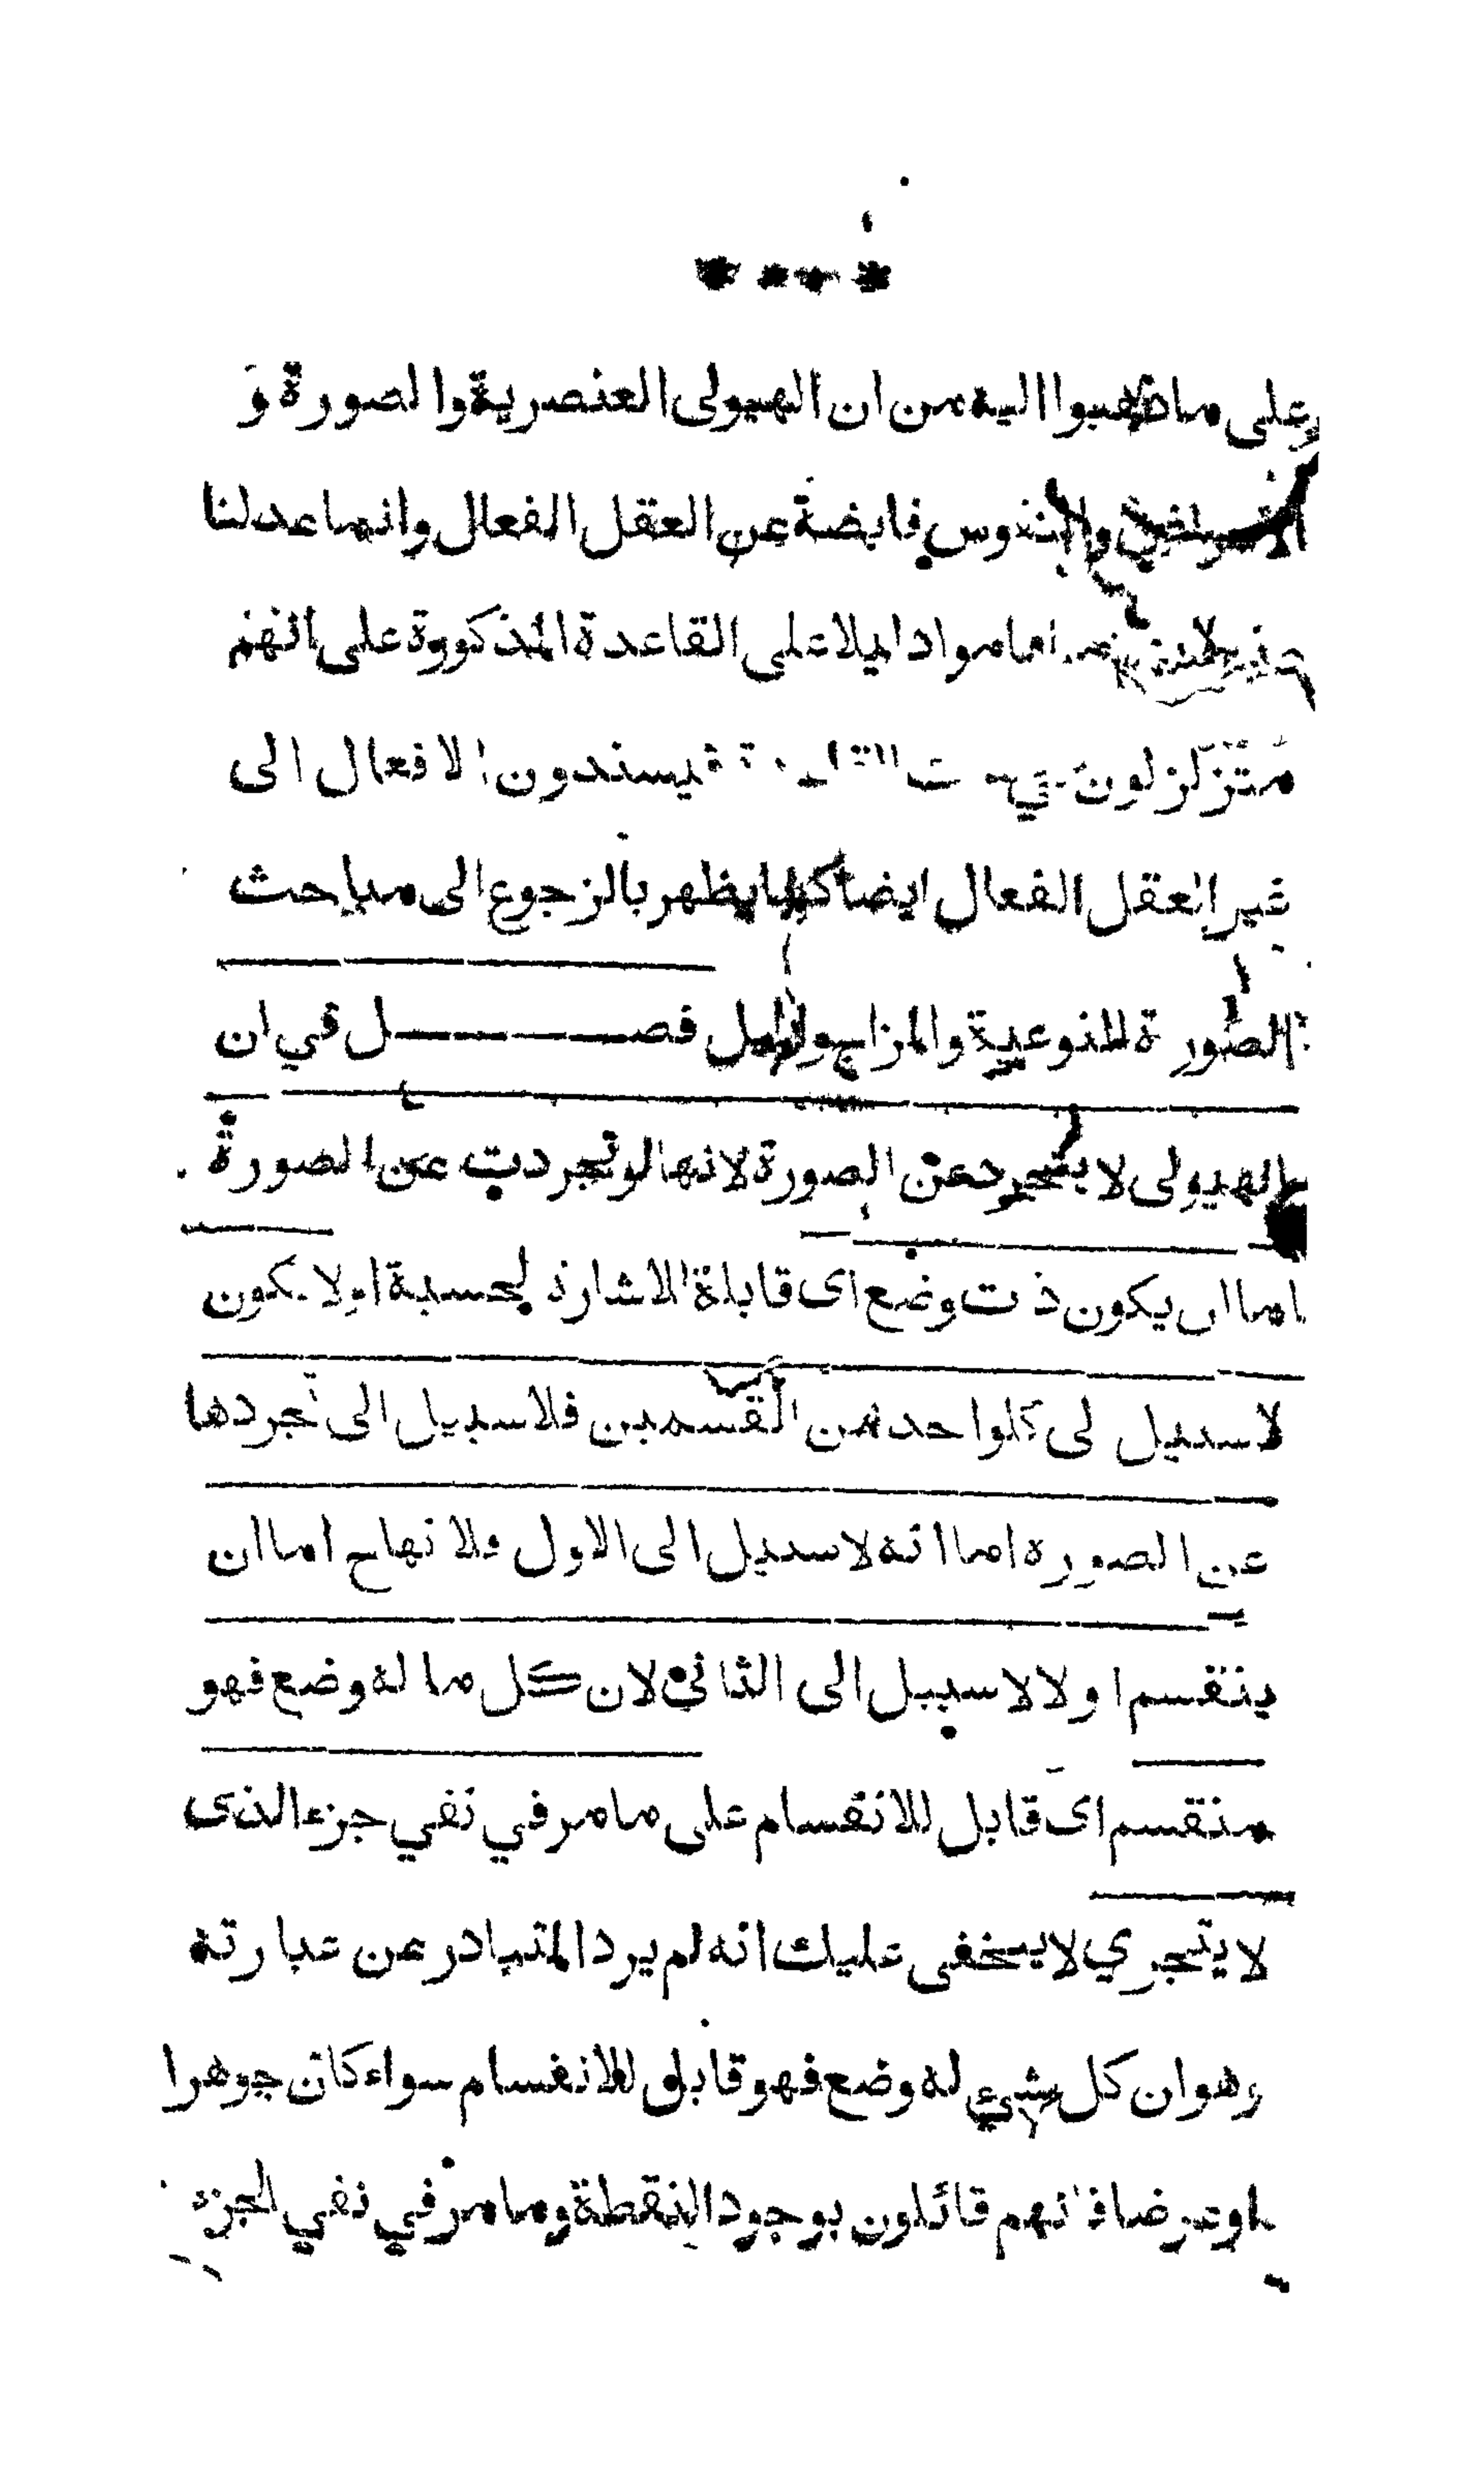 على ما ذهبوا اليه من ان الهيولى العنصرية والصورة و
الاعراض والنفوس فايضة عن العقل الفعال وانما عدلنا
اما مواد الميلا على القاعدة المذكورة على انهم
متزلزلون فيسندون الافعال الى
غير العقل الفعال ايضا كما يظهر بالرجوع الى مباحث
الصورة النوعية والمزاج فصل في ان
الهيولى لا يتجرد عن الصورة لانها لو تجردت عن الصورة
اما ان يكون ذت وضع اى قابلة الاشارة لحسية او لا يكون
لا سبيل لى كلواحد من القسمين فلا سبيل الى تجردها
عن الصورة اما انه لا سبيل الى الاول فلا نهاح اما ان
ينقسم او لا لا سبيل الى الثاني لان كل ما له وضع فهو
منقسم اى قابل للانقسام على ما مر في نفي جزء الذى
لا يتجري لا يخفى عليك انه لم يرد المتبادر عن عبارته
وهو ان كل شيء له وضع فهو قابل للانقسام سواء كان جوهرا
او عرضا فانهم قائلون بوجود النقطة وما مر في نفي الجزء